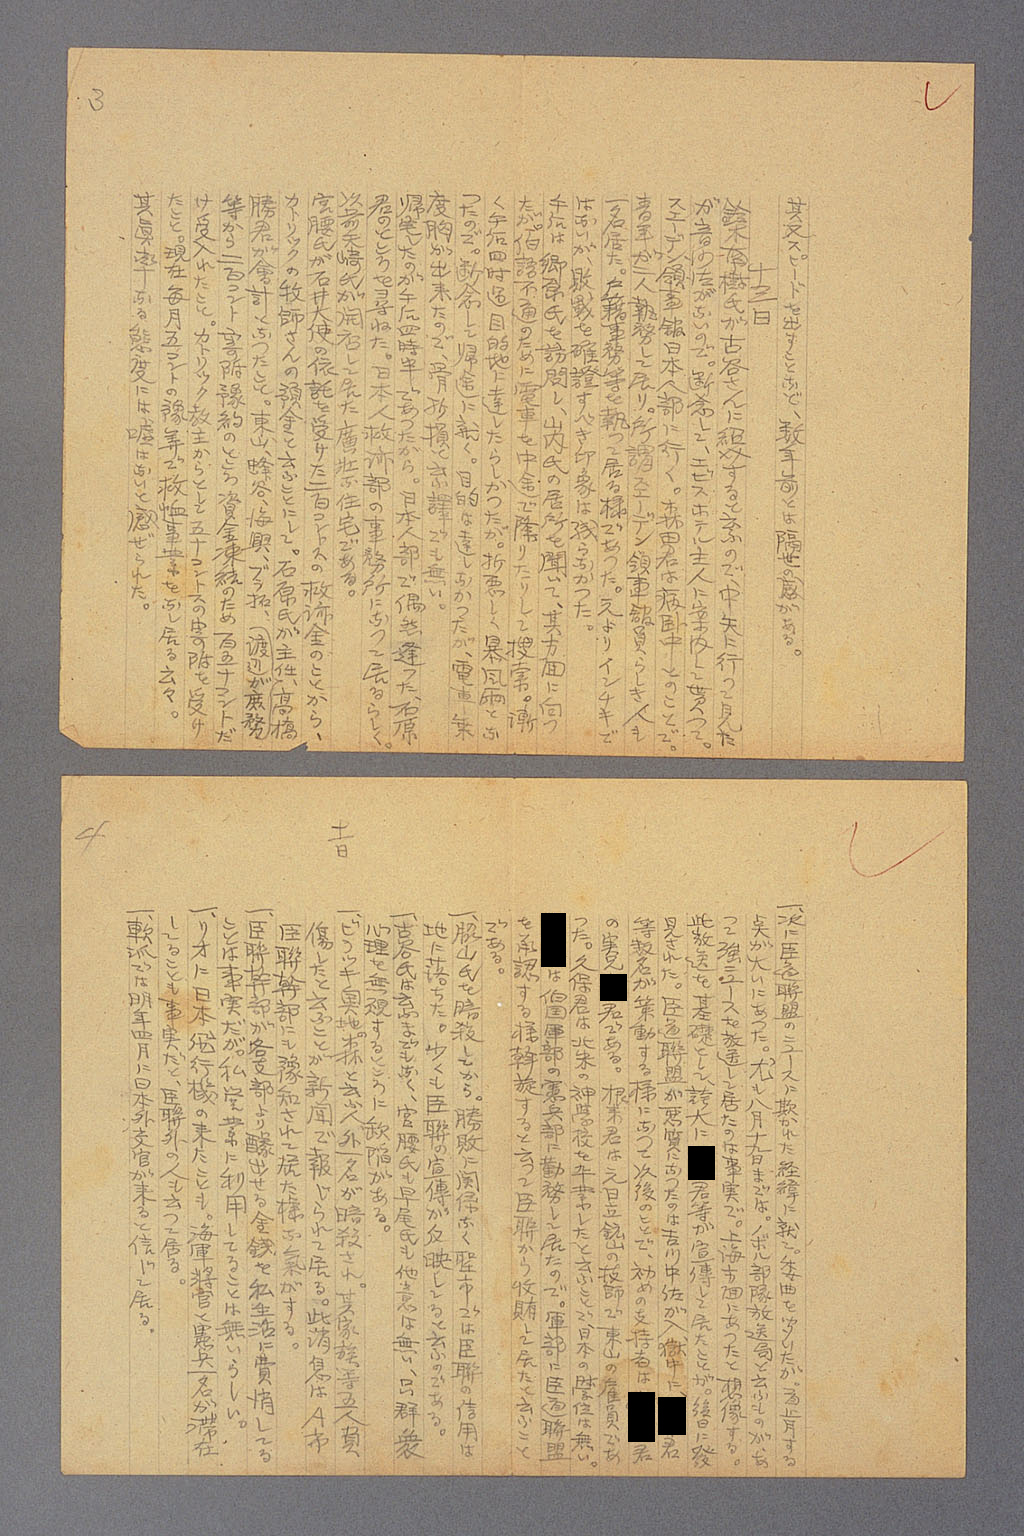 3
其又スピードを出すことなど、数年前とは隔世の感がある。
十三日
鈴木南樹氏が古谷さんに紹介すると云ふので、中矢に行つて見た
が音の在がないので。断念して、ヱビスホテル主人に案内して貰つて。
スエーデン領事館日本人部に行く。森田君は病臥中とのことで。
青年が二人執務して居り。所謂スエーデン領事館員らしき人も
一名居た。戸籍事務等を執つて居る様であつた。元よりインチキで
はないが、敗戦を確證すべき印象は残らなかつた。
午后は郷原氏を訪問し、山内氏の居所を聞いて、其方面に向つ
たが伯語不通のために電車を中途で降りたりして捜索。漸
く午后四時過目的地に達したらしかつたが。折悪しく暴風雨とな
つたので。断念して帰途に就く。目的は達しなかつたが、電車乗
度胸が出来たので、骨折損と云ふ譯でも無い。
帰宅したのが午后四時半であつたから。日本人部で偶然逢つた、石原
君のところを尋ねた。日本人救済部の事務所になつて居るらしく。
次前矢崎氏が開店して居た廣壮な住宅である。
宮腰氏が石井大使の依託を受けた二百コントスの救済金のことから、
カトリックの牧師さんの預金と云ふことにして。石原氏が主任、高橋
勝君が會計になつたこと。東山、蜂谷、海興、ブラ拓、(渡辺が庶務
等から二百コントの寄附豫約のところ資金凍結のため百五十コントだ
け受入れたこと。カトリック教主からとして五十コントスの寄附を受け
たこと。現在毎月五コントの豫算で救恤事業をなし居る云々。
其眞摯なる態度には嘘はないと感ぜられた。
4
一、次に臣道聯盟のニュースに欺かれた経緯に就て。委曲を聞いたが。首肯する
点が大いにあつた。尤も八月十九日までは。ノボル部隊放送局と云ふものがあ
つて強ニュースを放送して居たのは事実で。上海方面にあつたと想像する。
此放送を基礎として、誇大に
君等が宣傳して居たことが。後日に發
見された。臣道聯盟が悪質になつたのは吉川中佐が入獄中に、
君
等数名が策動する様になつて以後のことで、初めの支持者は
君
の実兄
君である。根来君は元日立鉱山の技師で東山の雇員であ
つた。久保君は北米の神学校を卒業したと云ふことで、日本の学位は無い。
は伯国軍部の憲兵部に勤務して居たので。軍部に臣道聯盟
を承認する様斡旋すると云つて臣聯から收賄して居たと云ふこと
である。
一、脇山氏を暗殺してから。勝敗に関係なく聖市では臣聯の信用は
地に落ちた。少くも臣聯の宣傳が反映してると云ふのである。
一、古谷氏は云ふまでもなく、宮腰氏も早尾氏も他意は無い、只群衆
心理を無視するところに欠陥がある。
十一日
一、ビラツキ奥地の森と云ふ人外一名が暗殺され。其家族等五人負
傷したと云ふことが新聞で報じられて居る。此消息はA市
臣聯幹部にも豫知されて居た様な氣がする。
一、臣聯幹部が各支部より醵出せる金銭を私生活に費消してる
ことは事実だが。私営業に利用してることは無いらしい。
一、リオに日本飛行機の来たことも。海軍将官と憲兵一名が滞在
してることも事実だと、臣聯外の人も云つて居る。
一、軟派では明年四月に日本外交官が来ると信じて居る。